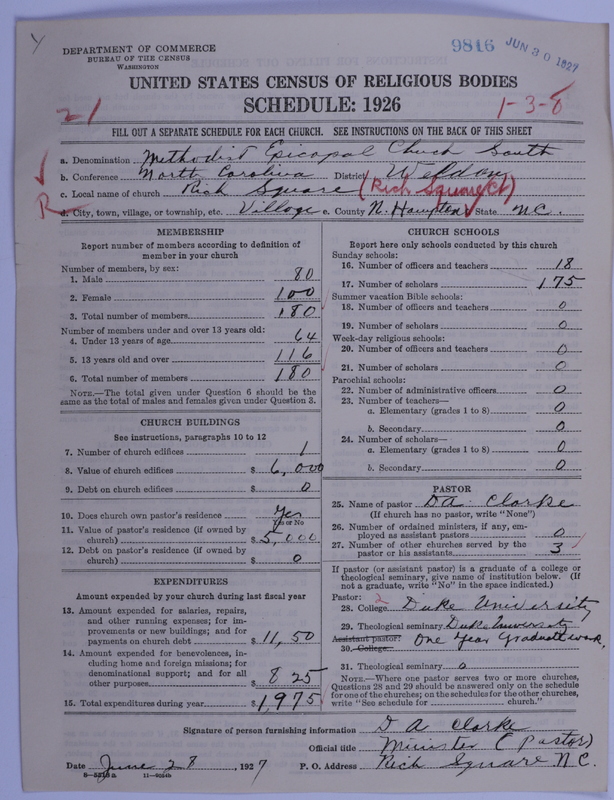 DEPARTMENT OF COMMERCE
BUREAU OF THE CENSUS
WASHINGTON
9816 JUN 30 1927
UNITED STATES CENSUS OF RELIGIOUS BODIES
SCHEDULE: 1926
21
1-3-8
FILL OUT A SEPARATE SCHEDULE FOR EACH CHURCH. SEE INSTRUCTIONS ON THE BACK OF THIS SHEET
a. Denomination Methodist Episcopal Church South
b. Conference North Carolina District Weldon
c. Local name of church Rich Square (Rich Square Ct)
R
d. City, town, village, or township, etc. Village e. County N. Hampton State N.C.
MEMBERSHIP
Report number of members according to definition of
member in your church
Number of members, by sex:
1. Male 80
2. Female 100
3. Total number of members 180
Number of members under and over 13 years old:
4. Under 13 years of age 64
5. 13 years old and over 116
6. Total number of members 180
NOTE.—The total given under Question 6 should be
same as the total of males and females given under Question 3.
CHURCH BUILDINGS
See instructions, paragraphs 10 to 12
7. Number of church edifices 1
8. Value of church edifices $ 6,000
9. Debt on church edifices $ 0
10. Does church own pastor's residence Yes
Yes or No
11. Value of pastor's residence (if owned by
church) $ 5,000
12. Debt on pastor's residence (if owned by
church) $ 0
EXPENDITURES
Amount expended by your church during last fiscal year
13. Amount expended for salaries, repairs,
and other running expenses; for im-
provements or new buildings; and for
payments on church debt $ 11,50
14. Amount expended for benevolences, in-
cluding home and foreign missions; for
denominational support; and for all
other purposes $ 825
15. Total expenditures during year $ 1,975
CHURCH SCHOOLS
Report here only schools conducted by this church
Sunday schools:
16. Number of officers and teachers 18
17. Number of scholars 175
Summer vacation Bible schools:
18. Number of officers and teachers 0
19. Number of scholars 0
Week-day religious schools:
20. Number of officers and teachers 0
21. Number of scholars 0
Parochial schools:
22. Number of administrative officers 0
23. Number of teachers—
a. Elementary (grades 1 to 8) 0
b. Secondary 0
24. Number of scholars—
a. Elementary (grades 1 to 8) 0
b. Secondary 0
PASTOR
25. Name of pastor D A Clarke
(If church has no pastor, write "None")
26. Number of ordained ministers, if any, em-
ployed as assistant pastors 0
27. Number of other churches served by the
pastor or his assistants 3
If pastor (or assistant pastor) is a graduate of a college or
theological seminary, give name of institution below. (If
not a graduate, write "No" in the space indicated.)
Pastor: 2
28. College Duke University
29. Theological seminary Duke University
Assistant pastor: One Year Graduate work.
30. College
31. Theological seminary 0
NOTE.—Where one pastor serves two or more churches,
Questions 28 and 29 should be answered only on the schedule
for one of the churches; on the schedules for the other churches,
write "See schedule for church."
Signature of person furnishing information D A Clarke
Official title Minister (Pastor)
Date June 28, 1927 P. O. Address Rich Square N.C.